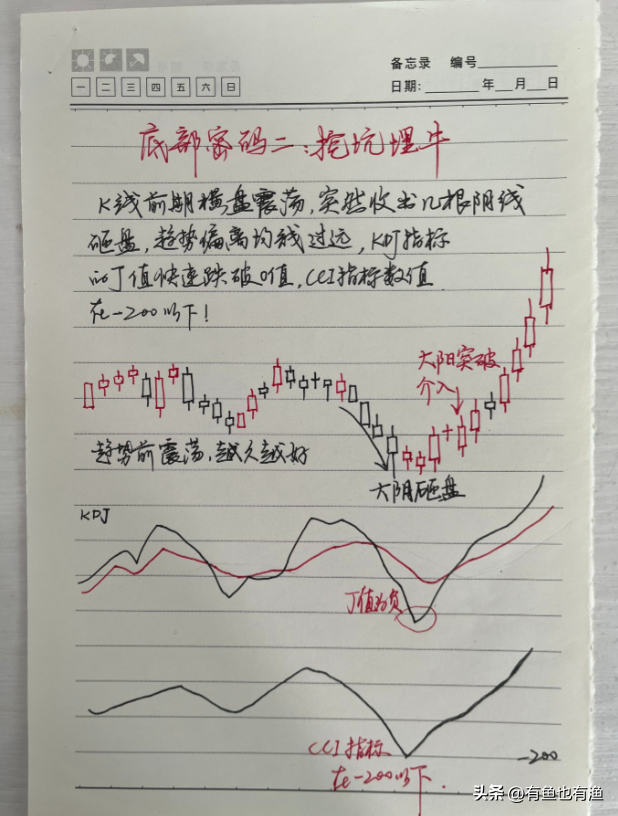 备忘录 编号
一 二 三 四 五 六 日
日期: 年 月 日
底部密码二:挖坑埋牛
K线前期横盘震荡,突然收出几根阴线
砸盘,趋势偏离均线过远,KDJ指标
的J值快速跌破0值,CCI指标数值
在-200以下!
大阳突破
介入
趋势前震荡,越久越好
大阴砸盘
KDJ
J值为负
CCI指标
在-200以下.
-200
头条 @有鱼也有渔